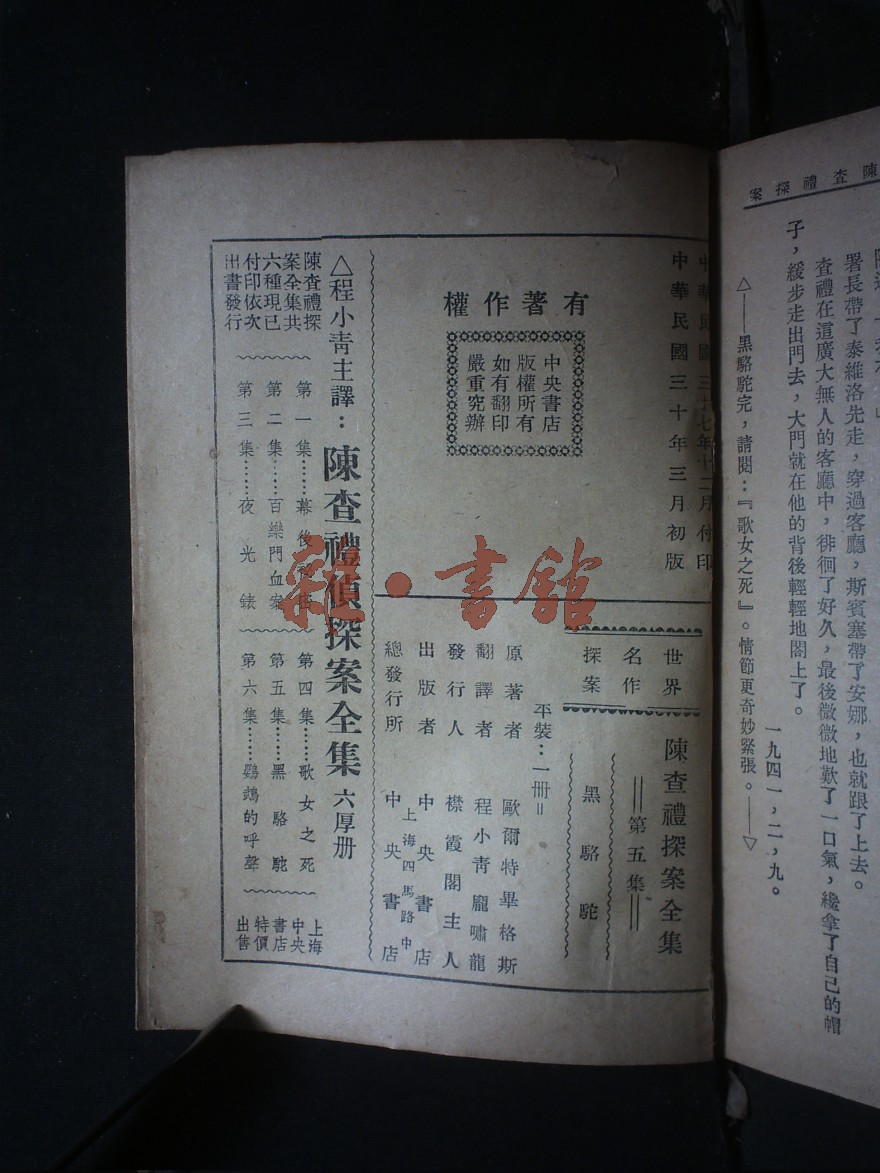 陳查禮探案
署長帶了泰維洛先走，穿過客廳，斯賓塞帶了安娜，也就跟了上去。
查禮在這廣大無人的客廳中，徘徊了好久，最後微微地歎了一口氣，纔拿了自己的帽
子，緩步走出門去，大門就在他的背後輕輕地閣上了。
一九四一，二，九。
△——黑駱駝完，請閱：『歌女之死』。情節更奇妙緊張。——▽
中華民國三十七年十二月付印
中華民國三十年三月初版
有著作權
中央書店
版權所有
如有翻印
嚴重究辦
世界
名作
探案
陳查禮探案全集
＝第五集＝
黑駱駝
平裝：一冊＝
原著者 歐爾特畢格斯
翻譯者 程小青龎嘯龍
發行人 襟霞閣主人
出版者 中央書店
上海四馬路中
總發行所 中央書店
△程小青主譯：陳查禮偵探案全集 六厚册
陳查禮探
案全集共
六種現已
付印依次
出書發行
第一集……幕後
第二集……百樂門血案
第三集……夜光錶
第四集……歌女之死
第五集……黑駱駝
第六集……鸚鵡的呼聲
上海
中央
書店
特價
出售
雜·書館